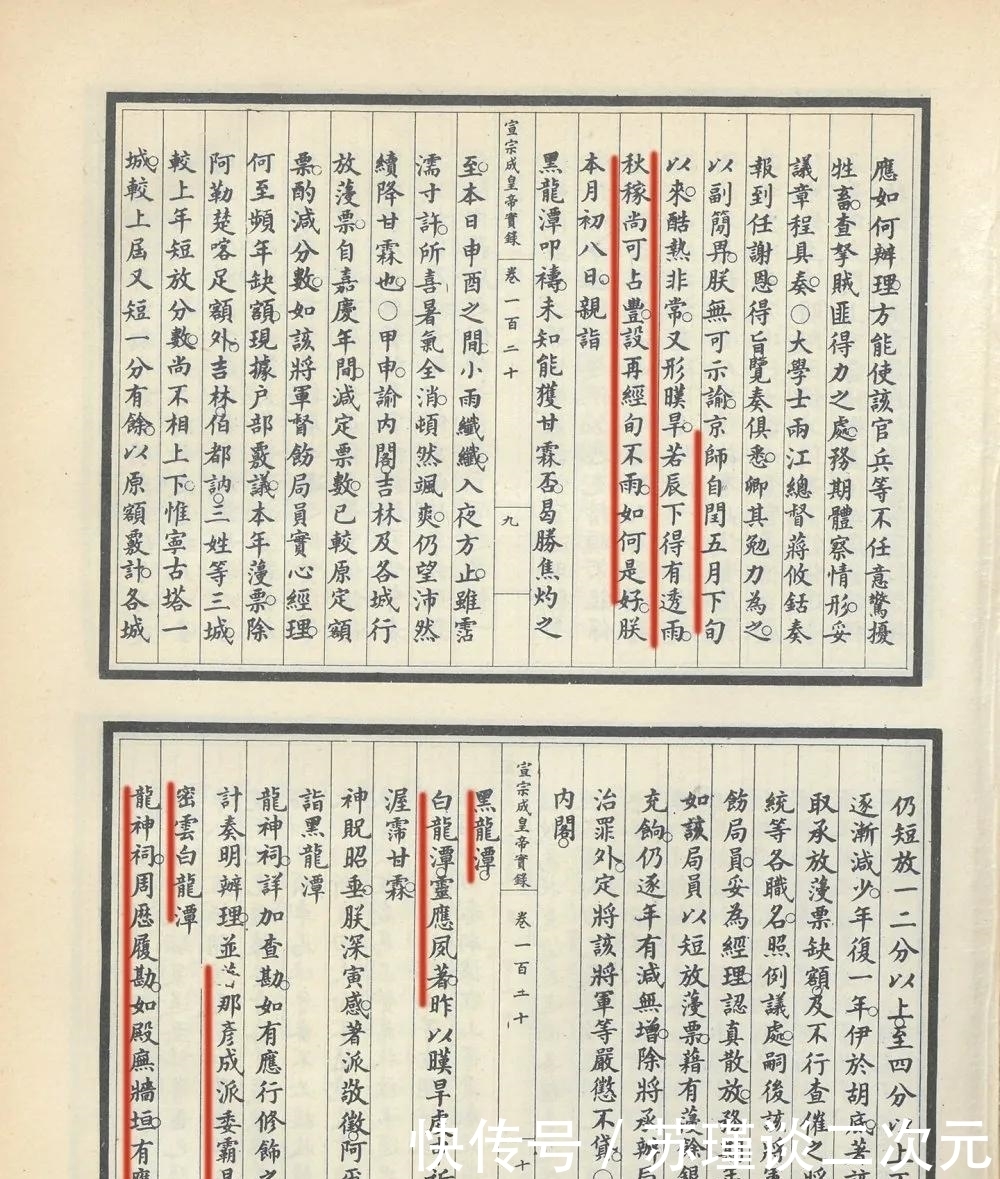 應如何辦理。方能使該官兵等不任意驚擾
牲畜。查拏賊匪得力之處。務期體察情形。妥
議章程具奏。○大學士兩江總督蔣攸銛奏
報到任謝恩。得旨覽奏俱悉。卿其勉力為之。
以副簡畀。朕無可示諭。京師自閏五月下旬
以來。酷熱非常。又形暵旱。若辰下得有透雨。
秋稼尚可占豐。設再經旬不雨。如何是好。朕
本月初八日。親詣
黑龍潭叩禱。未知能獲甘霖否。曷勝焦灼之
宣宗成皇帝實錄 卷一百二十 九
至。本日申酉之間。小雨纖纖。入夜方止。雖霑
濡寸許。所喜暑氣全消。頓然颯爽。仍望沛然
續降甘霖也。○甲申。諭內閣。吉林及各城行
放蓡票。自嘉慶年間。減定票數。已較原定額
票。酌減分數。如該將軍督飭局員實心經理。
何至頻年缺額。現據戶部覈議。本年蓡票。除
阿勒楚喀足額外。吉林。伯都訥。三姓等三城。
較上年短放分數。尚不相上下。惟寧古塔一
城。較上屆又短一分有餘。以原額覈計。各城
仍短放一二分以上至四分以上
逐漸減少。年復一年。伊於胡底。著
取承放蓡票缺額。及不行查催之將
統等各職名。照例議處。嗣後該將軍
飭局員。妥為經理。認真散放。務
如該局員以短放蓡票。藉有蓡餘銀
充餉。仍逐年有減無增。除將承辦局
治罪外。定將該將軍等嚴懲不貸。○
內閣。
宣宗成皇帝實錄 卷一百二十 十
黑龍潭。
白龍潭靈應夙著。昨以暵旱虔祈
渥霈甘霖。
神貺昭垂。朕深寅感。著派敬徵。阿
詣黑龍潭
龍神祠。詳加查勘。如有應行修飾之
計奏明辦理。並著那彥成派委霸昌
密雲白龍潭
龍神祠。周歷履勘。如殿廡牆垣。有應
快传号/苏瑾谈二次元